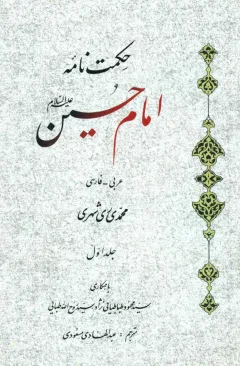 حکمت نامه
امام حسین علیه‌السلام
عربی - فارسی
محمدی ری شهری
جلد اول
با همکاری
سید محمود طباطبایی نژاد و سید روح الله طبایی
ترجمه: عبدالهادی مسعودی